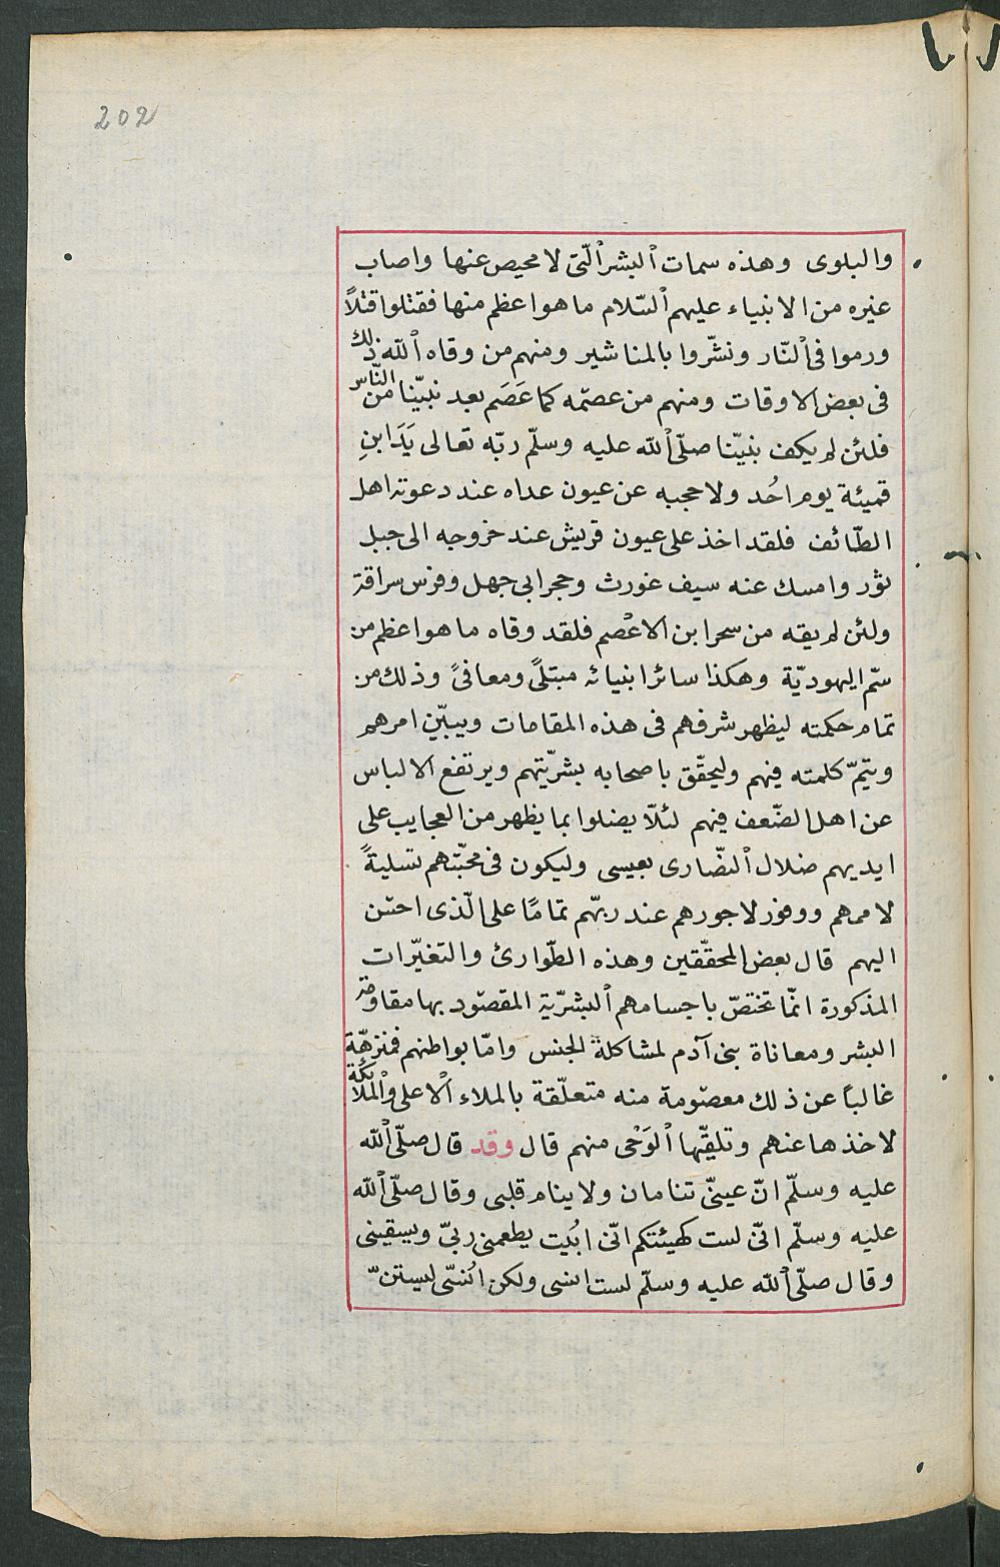 202
والبلوى وهذه سمات ٱلبشر ٱلّتى لا محيص عنها واصاب
غيره من الانبياء عليهم ٱلسّلام ما هو اعظم منها فقتلوا قتلاً
ورموا فى ٱلنّار ونشّروا بالمناشير ومنهم من وقاه ٱللّه ذلك
فى بعض الاوقات ومنهم من عصمه كما عَصَم بعد نبيّنا من النّاس
فلئن لم يكف نبيّنا صلّى ٱللّه عليه وسلّم ربّه تعالى يَدَ ابنِ
قميئة يوم احُد ولا حجبه عن عيون عداه عند دعوته اهل
الطّائف فلقد اخذ على عيون قريش عند خروجه الى جبل
ثور وامسك عنه سيف غورث وحجر ابى جهل وفرس سراقة
ولئن لم يقه من سحر ابن الاعْصم فلقد وقاه ما هو اعظم من
سّم اليهوديّة وهكذا سائر انبيائه مبتلىً ومعافىً وذلك من
تمام حكمته ليظهر شرفهم فى هذه المقامات ويبيّن امرهم
ويتمّ كلمته فيهم وليحقّق باصحابه بشريّتهم ويرتفع الالباس
عن اهل الضّعف فيهم لئلّا يضلوا بما يظهر من العجايب على
ايديهم ضلال ٱلنّصارى بعيسى وليكون فى محبّتهم تسليةً
لاممهم ووفور لاجورهم عند ربّهم تمامًا على الّذى احسن
اليهم قال بعض المحقّقين وهذه الطّوارئ والتغيّرات
المذكورة انمّا تختصّ باجسامهم ٱلبشرّية المقصود بها مقاومة
البشر ومعاناة بنى آدم لمشاكلة الجنس وامّا بواطنهم فمنزهّة
غالباً عن ذلك معصومة منه متعلّقة بالملاء ٱلاعلى وٱلملائكة
لاخذها عنهم وتلقيّها ٱلوَحْى منهم قال وقد قال صلّى ٱللّه
عليه وسلّم انّ عينىّ تنامان ولا ينام قلبى وقال صلّى ٱللّه
عليه وسلّم انّى لست كهيئتكم انّى ابُيت يطعمنى ربىّ ويسقينى
وقال صلّى ٱللّه عليه وسلّم لست انسى ولكن اُنسّى ليستنّ